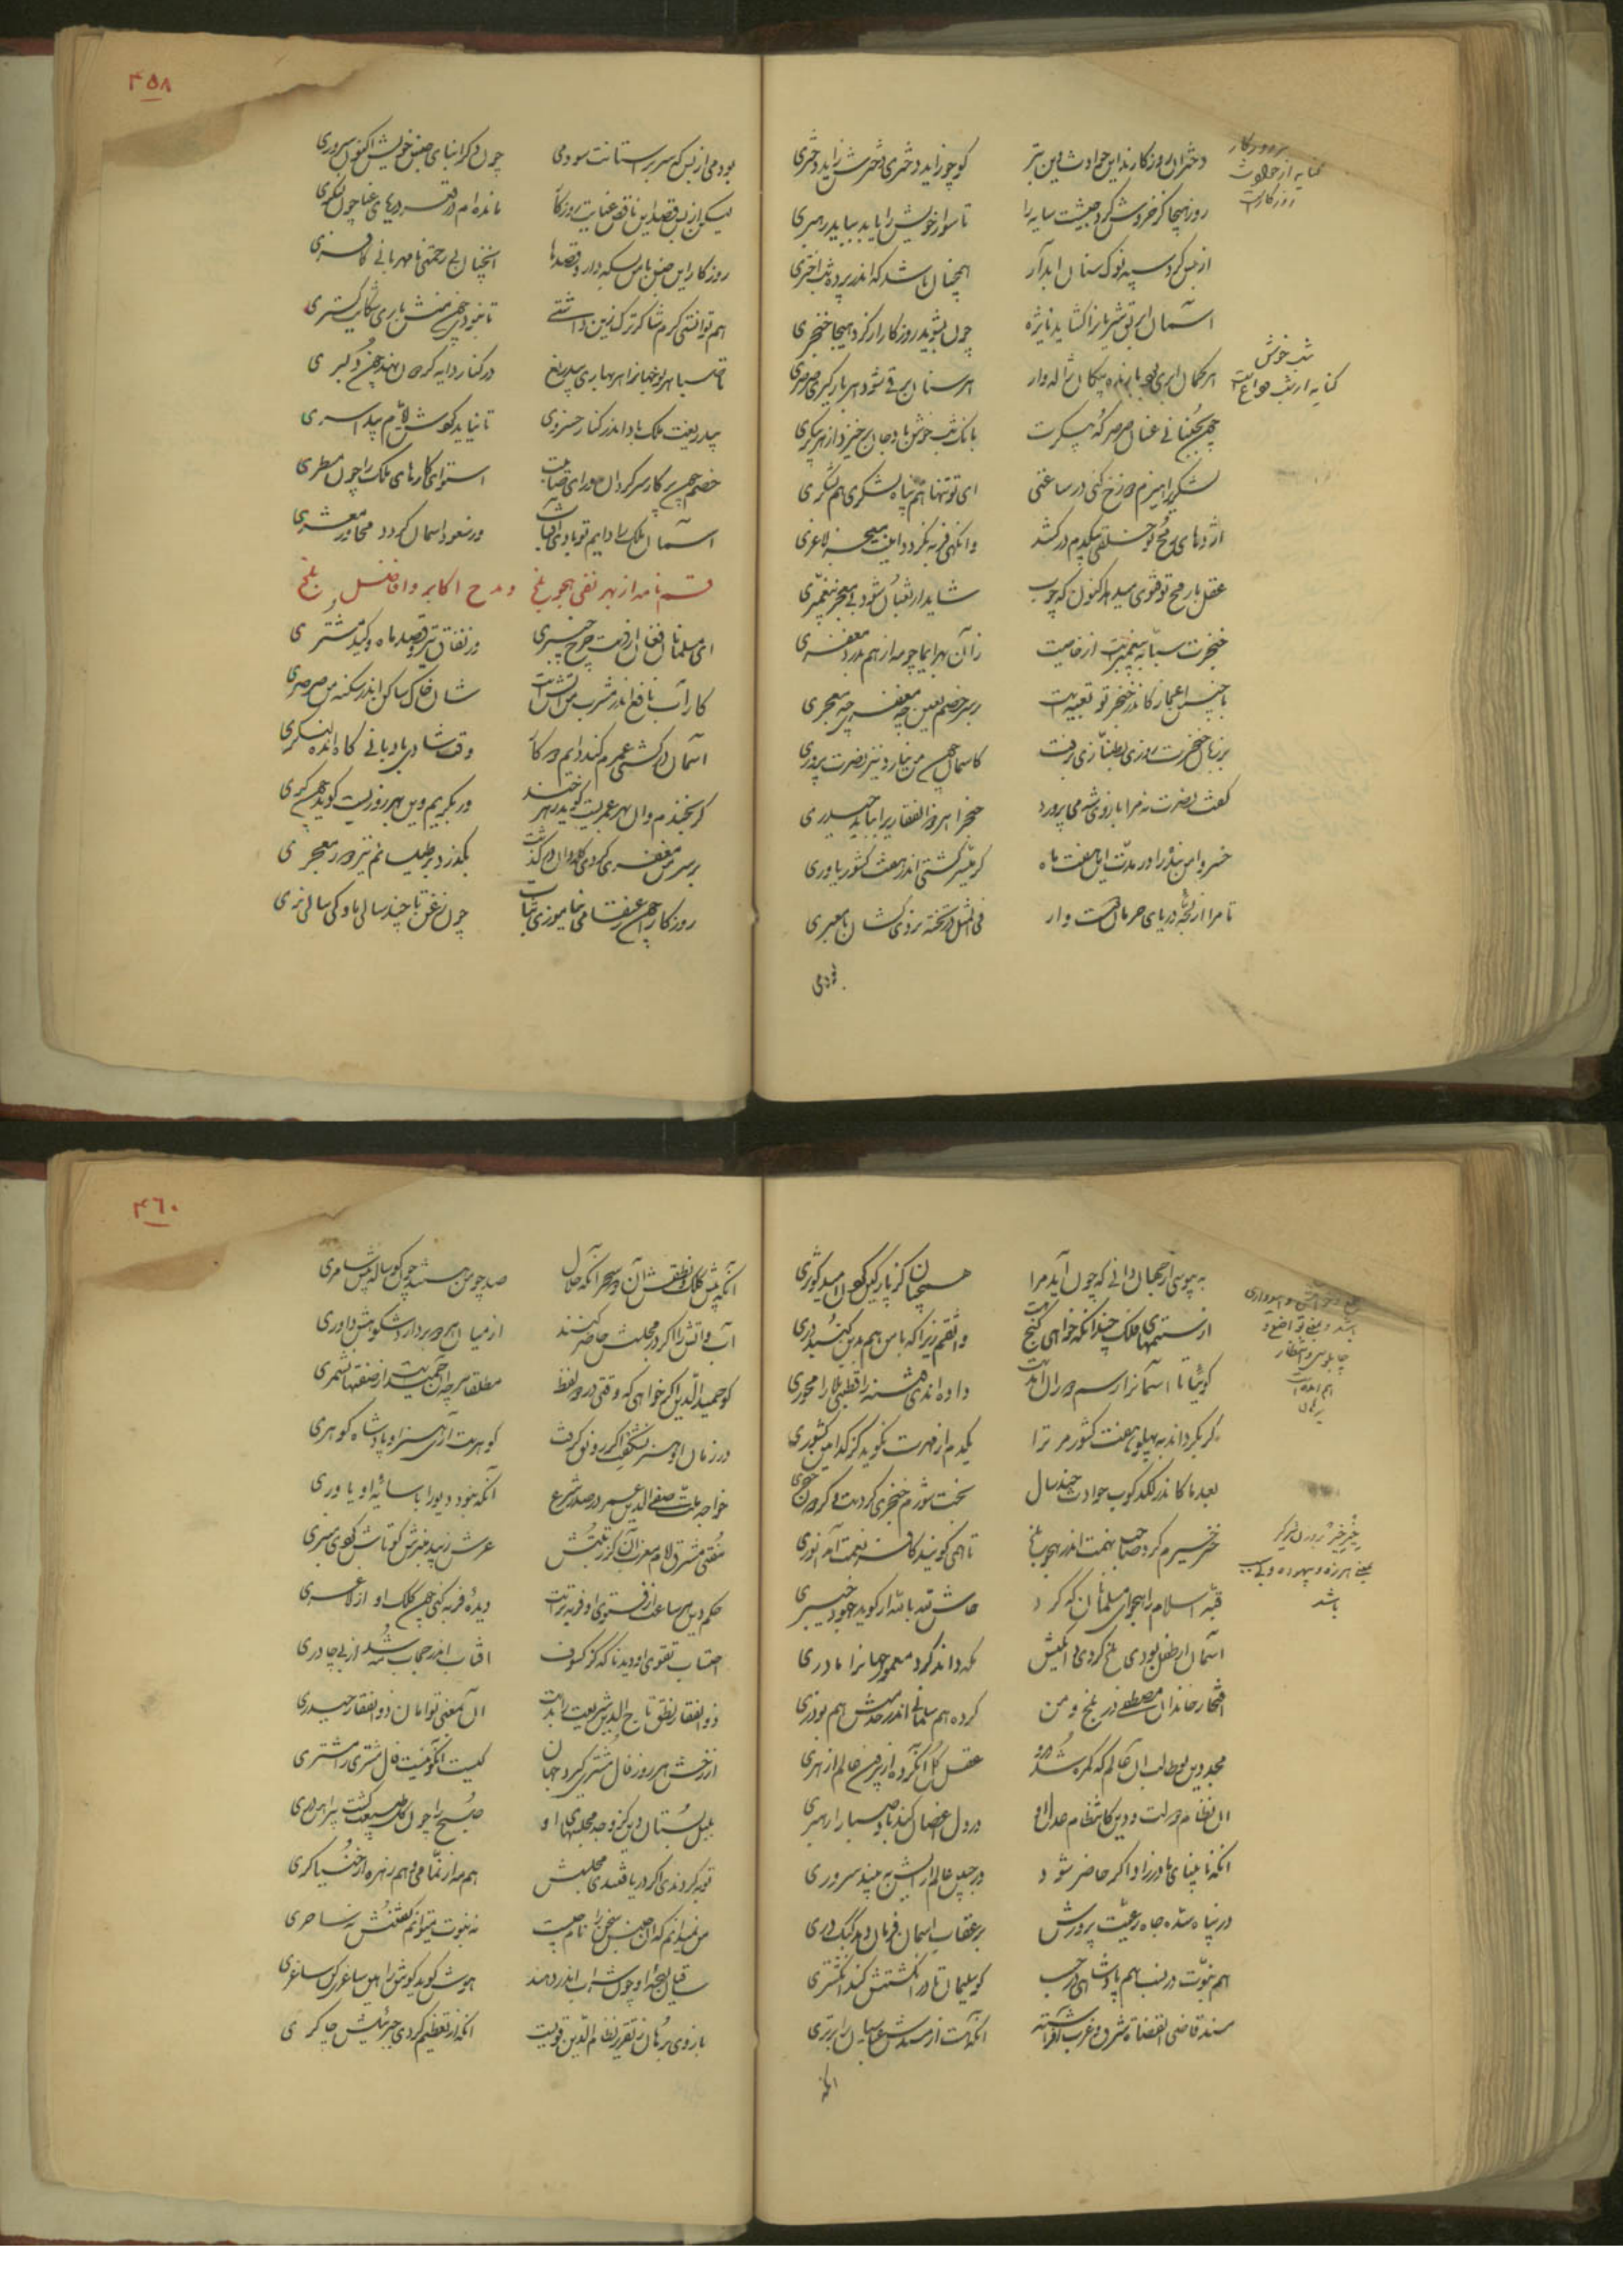 دختران روزگارند این حوادث وین بتر کو چو زاید دختری دخترش زاید دختری
روز هیجا کز خروش کرد جیشت سایه را تا سوار خویش را باید بباید رهبری
از بس گرد سپه نوک سنان آبدار همچنان باشد که اندر پرده شب اختری
آسمان ابر تو شریان را گشاید نایژه چون بشوید روزگار از گرد هیجا خنجری
هر کمان ابری بود بارنده پیکان ژاله وار هر سنان برقی شود هر بارگیری صرصری
چون بجنبانی عنان صرصر که پیکرت بانک شب خوش باد جان برخیزد از هر پیکری
لشکری را هیزم دوزخ کنی در ساعتی ای تو تنها هم پناه لشکری هم لشکری
اژدهای رمح تو خلقی بیکدم درکشد وانگهی فربه نگردد اینت معجز لاغری
عقل با رمح تو فتوی میدهد اکنون که چوب شاید ار ثعبان شود بی معجز پیغمبری
خنجرت سبابه پیغمبرست از خاصیت زان بهر ایما چو مه از هم بدرد مغفری
با چنین اعجاز کاندر خنجر تو تعبیه است بر سر خصم لعین چه مغفری چه معجری
بر زبان خنجرت روزی بطنازی برفت کاسمان چون من نیارد نیز نصرت پروری
گفت نصرت نه مرا بازوی شه می پرورد خنجرا هر ذوالفقاری را بباید حیدری
خسروا من بنده را در مدت این هفت ماه گر میسر گشتی اندر هفت کشور یاوری
تا مرا از لجه دریای حرمان دست وار فی المثل بر تخته بردی کشان تا معبری
بودمی
۴۵۸
بودمی از بس که سر بر آستانت سودمی چون دگر ابنای جنس خویش اکنون سروری
لیکن از بس قصد این ناقص عنایت روزگار مانده ام در قعر دریای عنا چون لنگری
روزگار این جنس با من بسکه دارد قصدها اینچنین بی رحمتی نامهربانی کافری
هم توانستی گرم شاکرترک زین داشتی تا نبودی چون منش باری شکایت گستری
تا صبا هر نو جهان را هر بهاری بیدریغ در کنار دایه گردون نهد چون دلبری
بیدریغت ملک بادا اندر کنار خسروی تا نیاید گوش لا از مادر پدر اسری
خصم چون پرگار سرگردان و رای صائبت استوای کارهای ملک را چون مسطری
آسمان ملک را دایم تو بادی آفتاب ور نبود آسمان گردد مجاور معشری
قسم نامه از بهر نفی هجو بلخ و مدح اکابر و افاضل بلخ
ای مسلمانان فغان از دست چرخ چنبری وز نفاق تیر و قصد ماه و کید مشتری
کار آب نافع اندر مشرب من آتشست شغل خاک ساکن اندر سکنه من صرصری
آسمان در کشتی عمرم کند دایم دو کار وقت شادی بادبانی گاه انده لنگری
گر بخندم وان بهر عمریست گوید زهرخند ور بگریم وین بهر روزیست گوید خون گری
بر سر من مغفری کردی کله وان درگذشت بگذرد بر طیلسانم نیز دور معجری
روزگارا چون ز عنقا می نیاموزی ثبات چون زغن تا چند سالی مادگی سالی نری
کنایه از حوادث روزگار است
شب خوش کنایه از شب وداع است
به بپرسی از جهان دانی که چون آید مرا همچنان کز پارگین امید کردن کوثری
از ستمهای فلک چندانکه خواهی گنج هست واثقم زیرا که با من هم بدین گنبد دری
گوئیا تا آسمان را رسم دوران آمدست داده اندی فتنه را قطبی بلا را محوری
گر بگرداند به پهلو هفت کشور مر ترا یکدم از مهرت نگوید کز کدامین کشوری
بعد ما کاندر لگدکوب حوادث چند سال بخت شورم خنجری کردست دهر حنجری
خیر خیرم کرد صاحب تهمت اندر هجو بلخ تا همی گویند کافر نعمت آمد انوری
قبه اسلام را هجو ای مسلمانان که کرد حاش لله بالله ار گوید جهود خیبری
آسمان ار طفل بودی بلخ کردی دایگیش مکه داند کرد معمور جهان را مادری
افتخار خاندان مصطفی در بلخ و من کرده هم سلمانی اندر خدمتش هم بوذری
مجد دین بوطالب آن عالم که گم شد در او عقل کل آن کرده از بیرون عالم از هری
آن نظام دولت و دین کانتظام عدل او در دل اغصان کند باد صبا را رهبری
آنکه نابینای مادرزاد اگر حاضر شود در جبین عالم آرایش به بیند سروری
در پناه سده جاه رعیت پرورش بر عقاب آسمان فرمان دهد کبک دری
هم نبوت در نسب هم پادشاهی در حسب کو سلیمان تا در انگشتش کند انگشتری
مسند قاضی القضاة شرق و غرب افراشته آنکه هست از مسندش عباسیان را برتری
آنکه
۴۶۰
آنکه پیش کلک و نطقش آن دو سحر آنکه حلال صد چو من هستند چون گوساله پیش سامری
آب و آتش را اگر در مجلسش حاضر کنند از میان هر دو بردارد شکوهش داوری
کو حمید الدین اگر خواهی که وقتی در دو لفظ مطلقا هر چه آن حمیدست از صفتها بشمری
در زمان او هنر نشگفت اگر رونق گرفت گوهرست آری هنر او پادشاه گوهری
خواجه ملت صفی الدین عمر در صدر شرع آنکه نبود دیو را با سایه او یاوری
مفتی مشرق امام مغرب آن کز رتبتش عرش زیبد منبرش کو تاش گوی منبری
حکم دین هر ساعت از فتوی او فربه ترست دیده فربه کنی چون کلک او از لاغری
احتساب تقوی او دید ناگه کز کسوف آفتاب اندر حجاب مه شد از بی چادری
ذوالفقار نطق تاج الدین شریعت را بدست آن بمعنی توامان ذوالفقار حیدری
از رخش هر روز فال مشتری گیرد جهان کیست آنکو نیست فال مشتری را مشتری
بلبل بستان دین کز وجد مجلسهای او صبح را چون گل طبیعت گشت پیراهن دری
توبه کردندی اگر دریافتندی مجلسش هم مه از نمامی و هم زهره از خنیاگری
من نمیدانم که این جنس سخن را نام چیست نه نبوت میتوانم گفتنش نه ساحری
ساقیان لهجه او چون شراب اندر دهند هوش گوید گوش را هین ساغری کن ساغری
بازوی برهان ز تقریر نظام الدین قویست آنکه از تعظیم کردی جبرئیلش چاکری